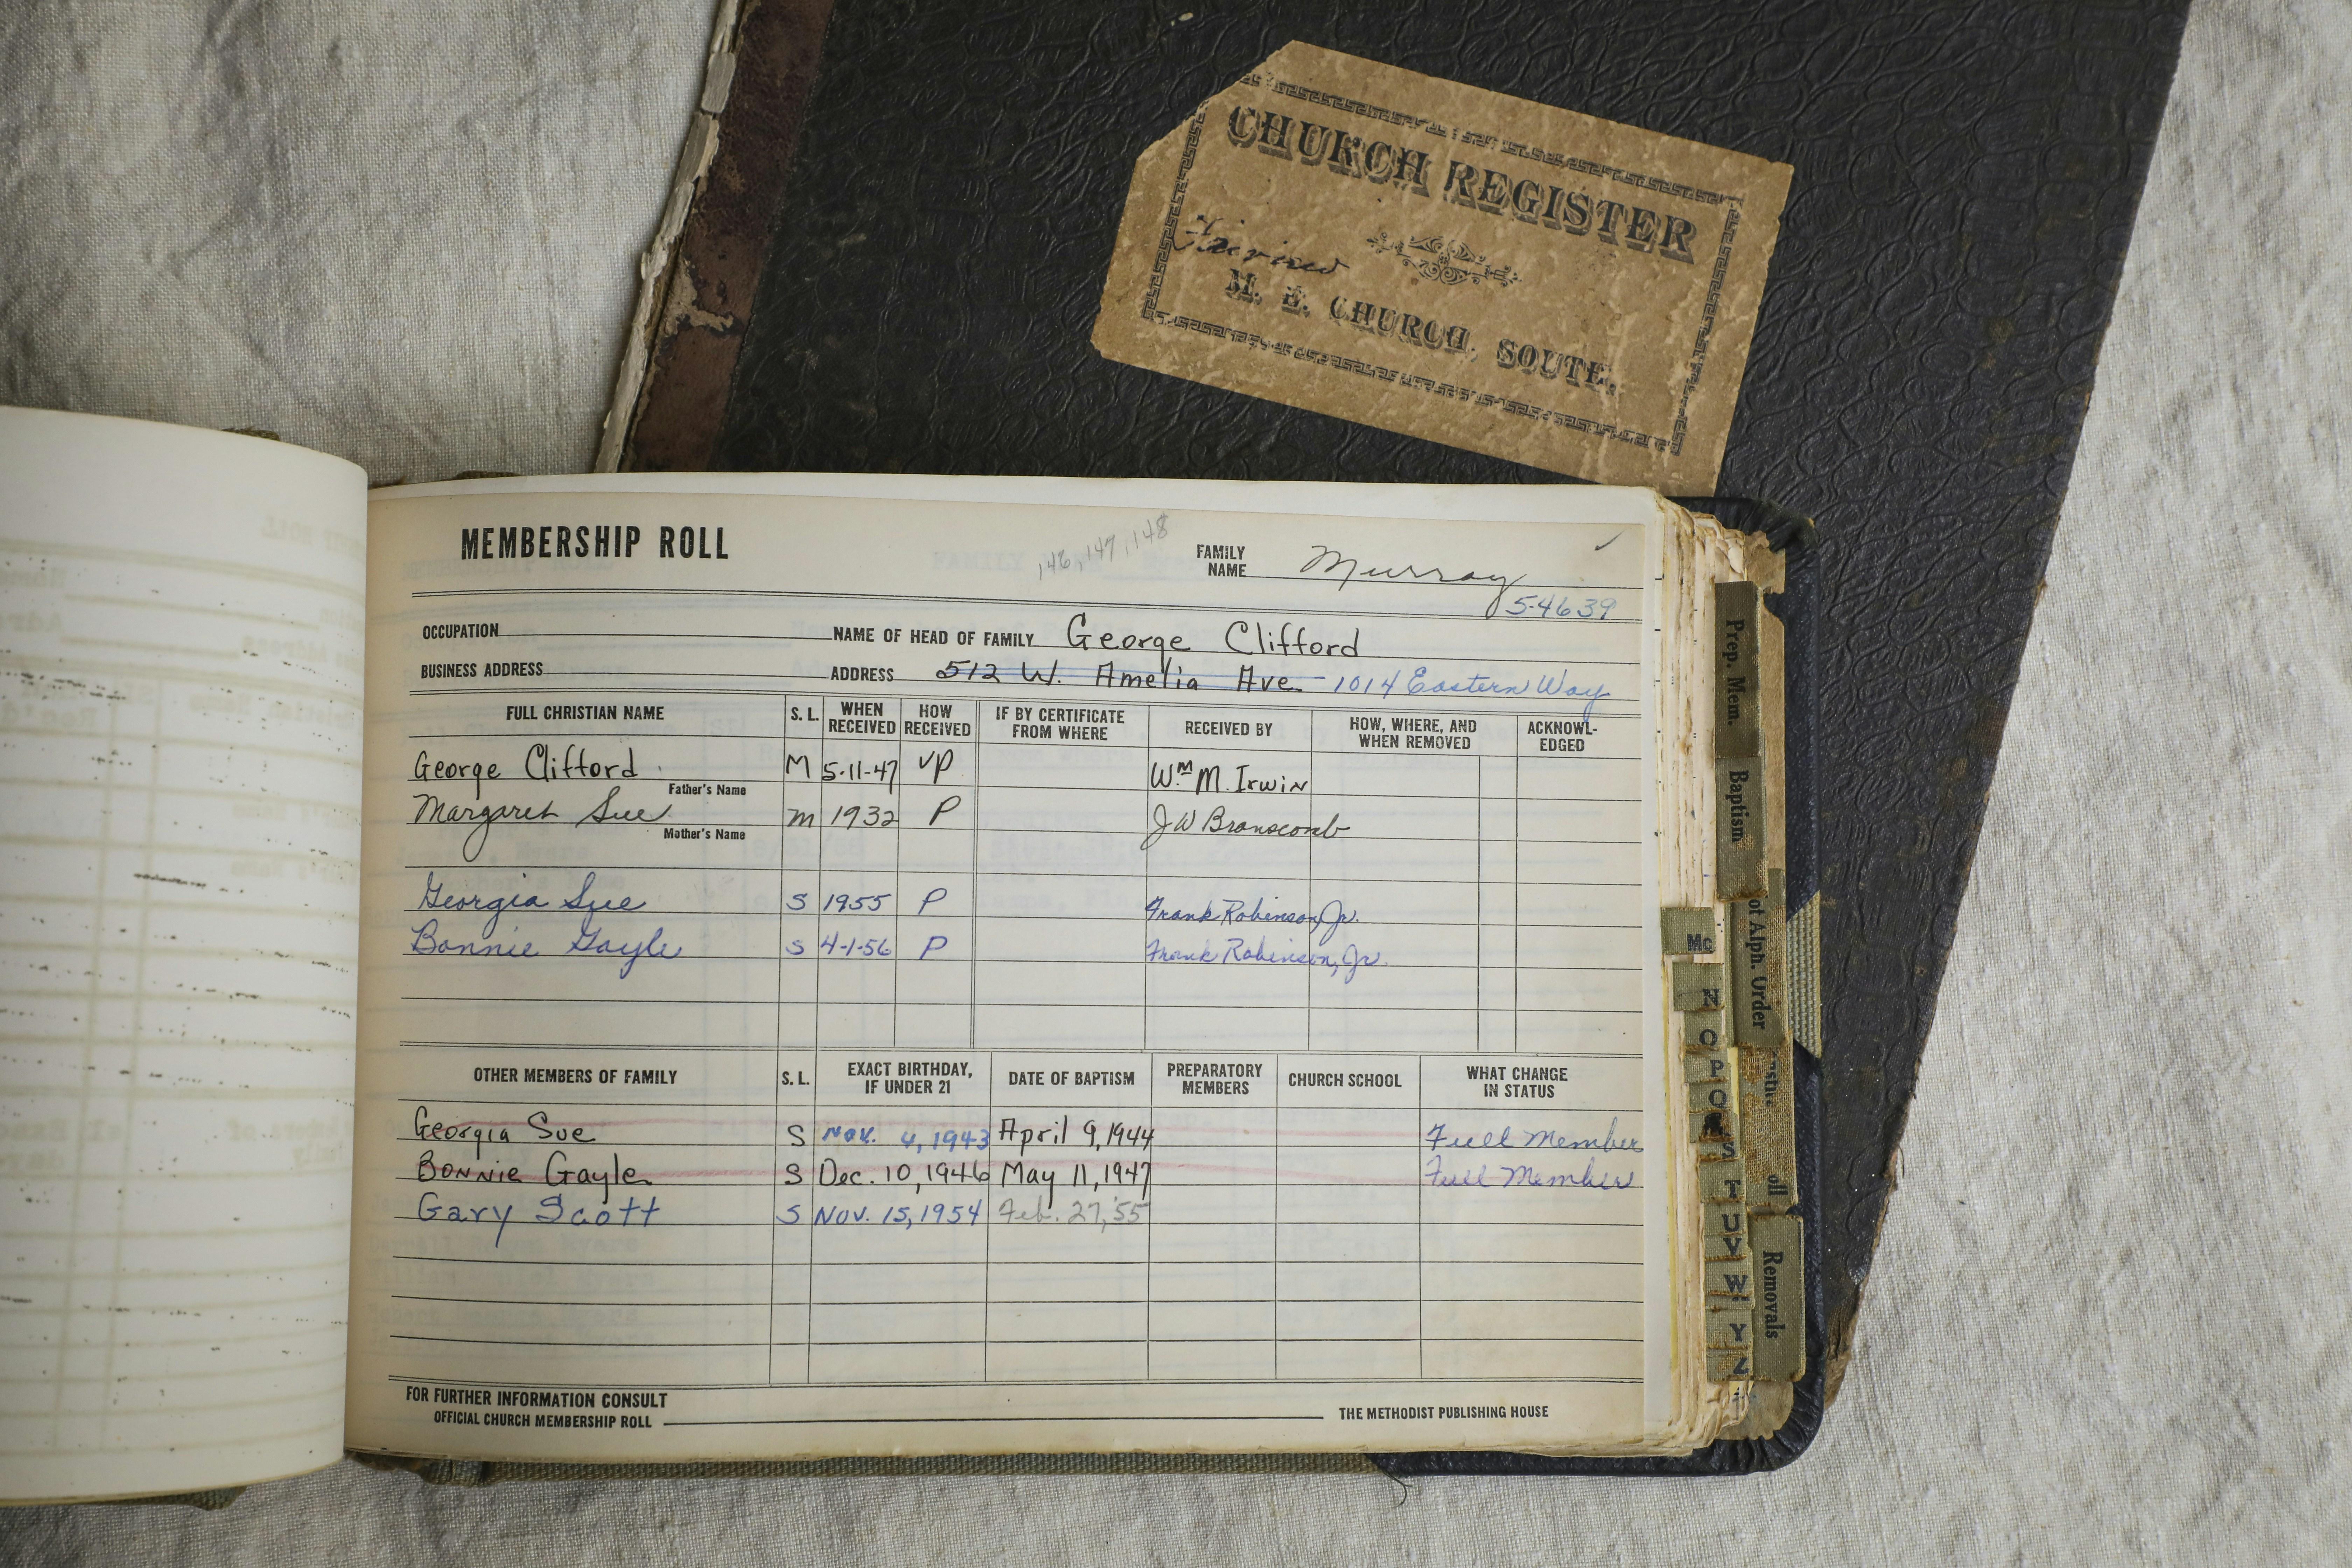 CHURCH REGISTER
M. E. CHURCH, SOUTH.
MEMBERSHIP ROLL
,146,147,148
FAMILY NAME Murray
5-4639
OCCUPATION NAME OF HEAD OF FAMILY George Clifford
BUSINESS ADDRESS ADDRESS 512 W. Amelia Ave. 1014 Eastern Way
FULL CHRISTIAN NAME S. L. WHEN RECEIVED HOW RECEIVED IF BY CERTIFICATE FROM WHERE RECEIVED BY HOW, WHERE, AND WHEN REMOVED ACKNOWL-EDGED
George Clifford M 5-11-47 VP Wm M. Irwin
Father's Name
Margaret Sue m 1932 P J W Branscomb
Mother's Name
Georgia Sue S 1955 P Frank Robinson, Jr.
Bonnie Gayle S 4-1-56 P Frank Robinson, Jr.
OTHER MEMBERS OF FAMILY S. L. EXACT BIRTHDAY, IF UNDER 21 DATE OF BAPTISM PREPARATORY MEMBERS CHURCH SCHOOL WHAT CHANGE IN STATUS
Georgia Sue S Nov. 4, 1943 April 9, 1944 Full Member
Bonnie Gayle S Dec. 10, 1946 May 11, 1947 Full Member
Gary Scott S Nov. 15, 1954 Feb. 27, '55
FOR FURTHER INFORMATION CONSULT
OFFICIAL CHURCH MEMBERSHIP ROLL THE METHODIST PUBLISHING HOUSE
Prep. Mem.
Baptism
Alph. Order
Removals
Mc
N
O
P
Q
S
T
U
V
W
Y
Z